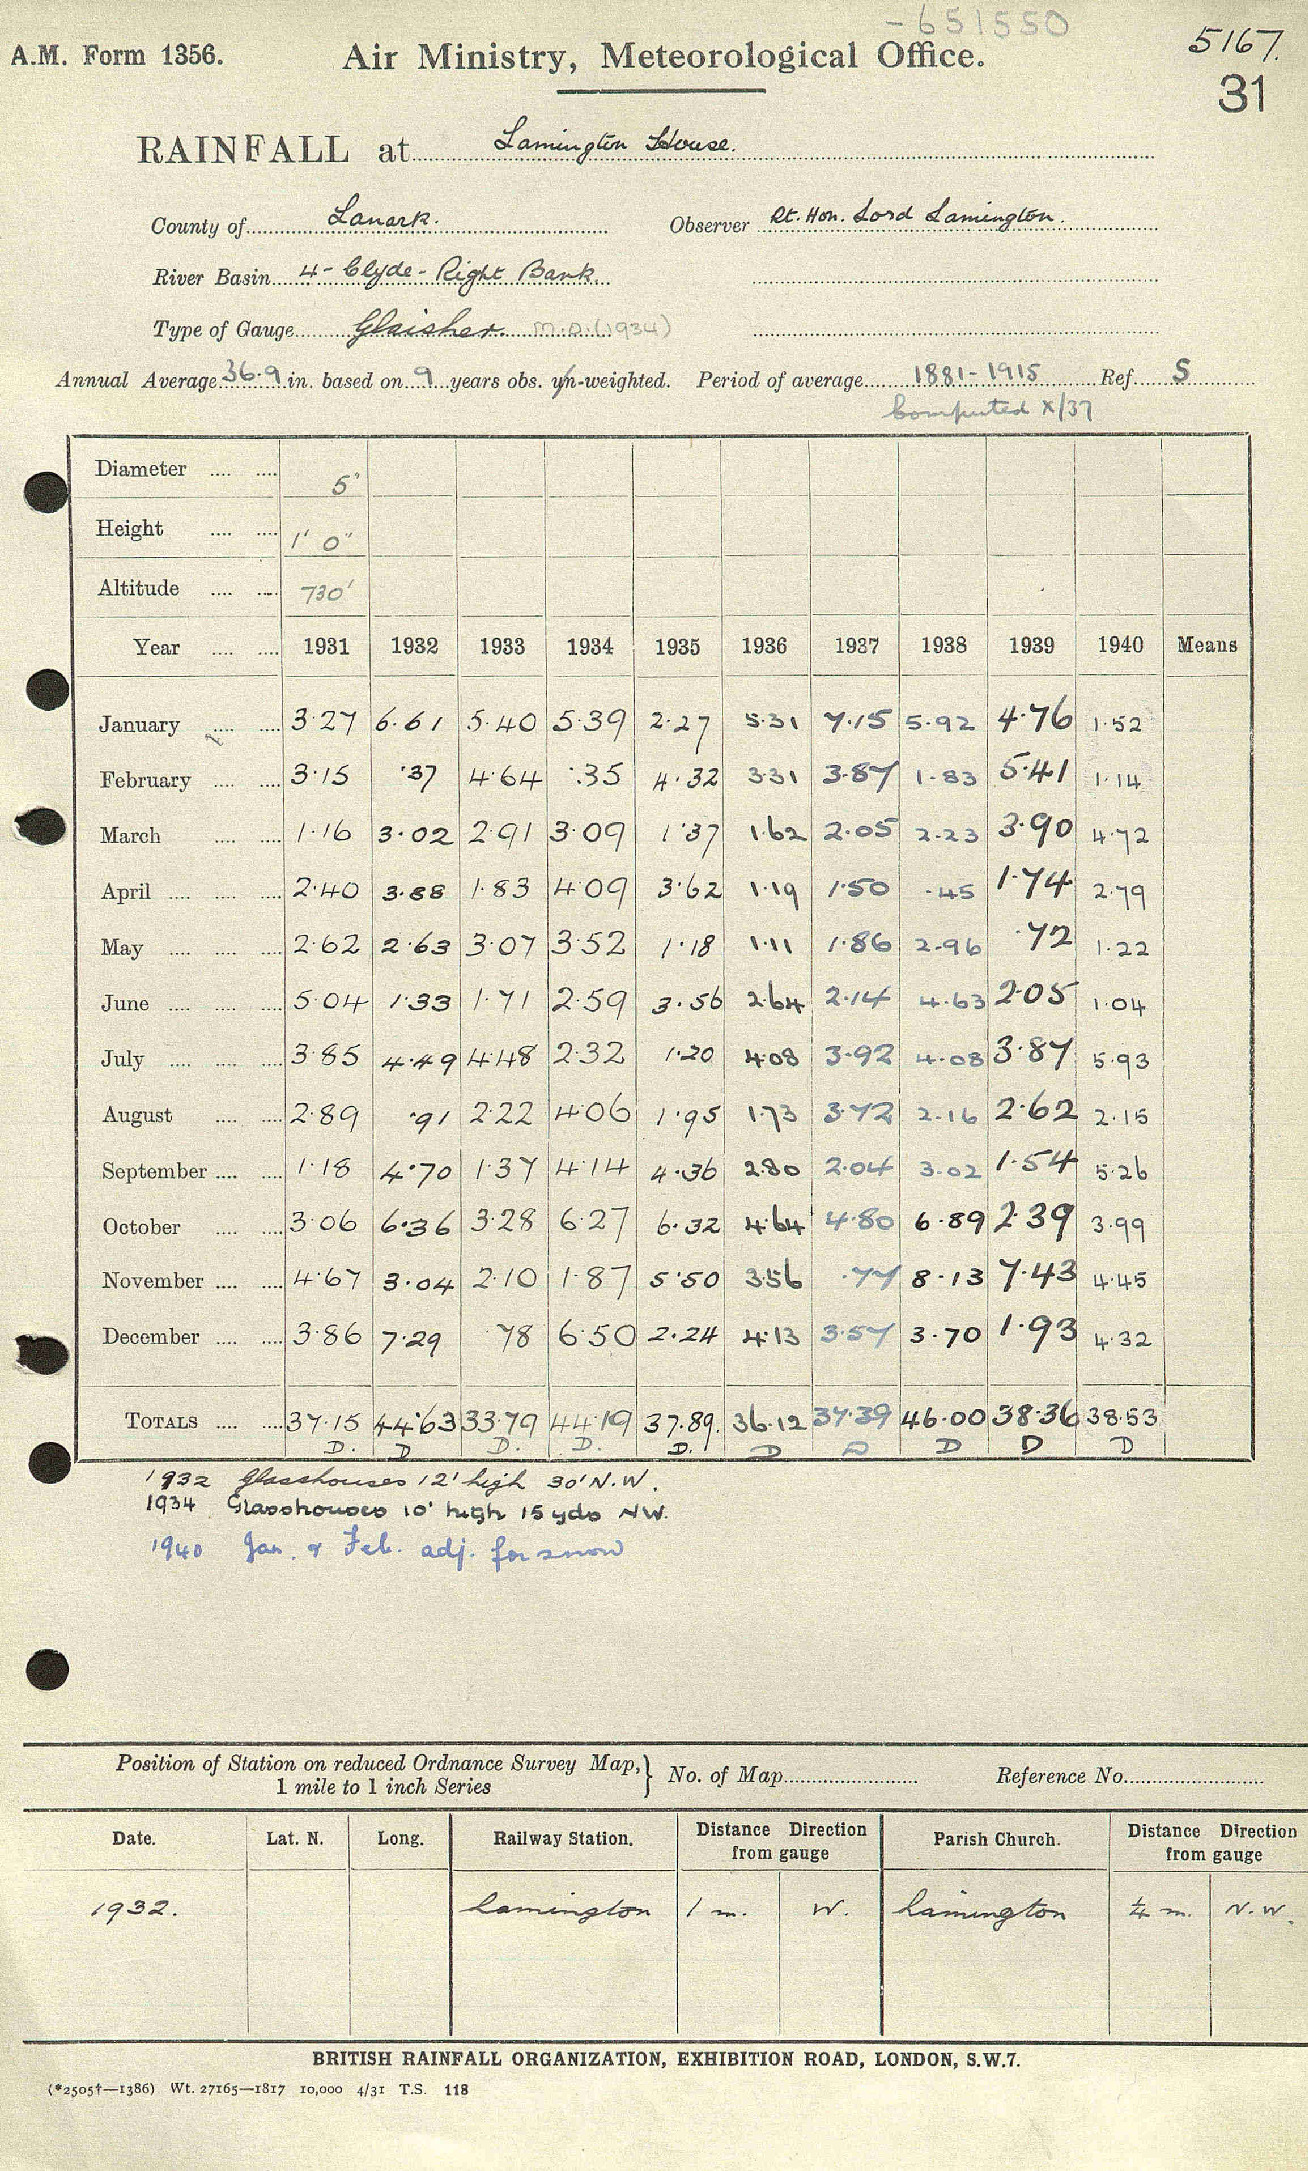 -651550
A.M. Form 1356. Air Ministry, Meteorological Office. 5167.
31
RAINFALL at Lamington House.
County of Lanark. Observer Rt. Hon. Lord Lamington.
River Basin 4- Clyde - Right Bank
Type of Gauge Glaisher. M.O. (1934)
Annual Average 36.9 in. based on 9 years obs. un-weighted. Period of average 1881-1915 Ref. S
Computed X/37
Diameter .... .... 5"
Height .... .... 1' 0"
Altitude .... .... 730'
Year .... .... 1931 1932 1933 1934 1935 1936 1937 1938 1939 1940 Means
January .... .... 3.27 6.61 5.40 5.39 2.27 5.31 7.15 5.92 4.76 1.52
February .... .... 3.15 .37 4.64 .35 4.32 3.31 3.87 1.83 5.41 1.14
March .... .... 1.16 3.02 2.91 3.09 1.37 1.62 2.05 2.23 3.90 4.72
April .... .... .... 2.40 3.88 1.83 4.09 3.62 1.19 1.50 .45 1.74 2.79
May .... .... .... 2.62 2.63 3.07 3.52 1.18 1.11 1.86 2.96 .72 1.22
June .... .... .... 5.04 1.33 1.71 2.59 3.56 2.64 2.14 4.63 2.05 1.04
July .... .... .... 3.85 4.49 4.48 2.32 1.20 4.08 3.92 4.08 3.87 5.93
August .... .... 2.89 .91 2.22 4.06 1.95 1.73 3.72 2.16 2.62 2.15
September .... .... 1.18 4.70 1.37 4.14 4.36 2.80 2.04 3.02 1.54 5.26
October .... .... 3.06 6.36 3.28 6.27 6.32 4.64 4.80 6.89 2.39 3.99
November .... .... 4.67 3.04 2.10 1.87 5.50 3.56 .77 8.13 7.43 4.45
December .... .... 3.86 7.29 78 6.50 2.24 4.13 3.57 3.70 1.93 4.32
TOTALS .... .... 37.15 44.63 33.79 44.19 37.89. 36.12 37.39 46.00 38.36 38.53
D. D D. D. D. D D D D D
1932 Glasshouses 12' high 30' N.W.
1934 Glasshouses 10' high 15 yds NW.
1940 Jan. & Feb. adj. for snow
Position of Station on reduced Ordnance Survey Map,} No. of Map Reference No.
1 mile to 1 inch Series
Date. Lat. N. Long. Railway Station. Distance Direction from gauge Parish Church. Distance Direction from gauge
1932. Lamington 1 m. W. Lamington ¼ m. N.W.
BRITISH RAINFALL ORGANIZATION, EXHIBITION ROAD, LONDON, S.W.7.
(*2505†—1386) Wt. 27165—1817 10,000 4/31 T.S. 118